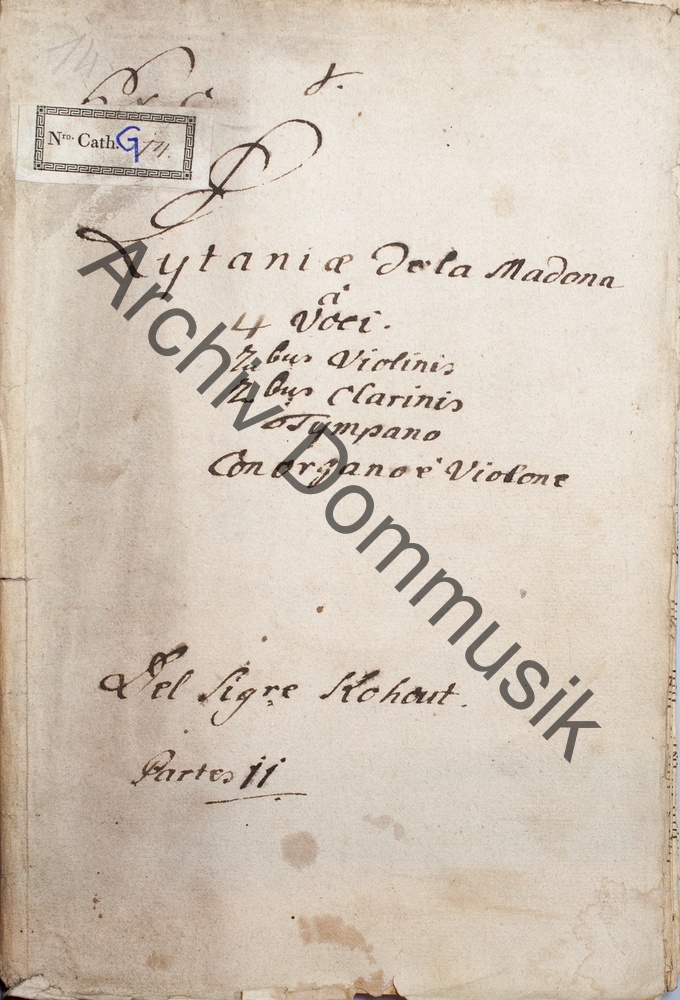 14
Nro. Cath. G 14.
Lytaniæ De la Madona
a
4 Voci.
2bus Violinis
2bus Clarinis
Tympano
Con organo e Violone
Del Sigre Kohout.
Partes 11
Archiv Dommusik